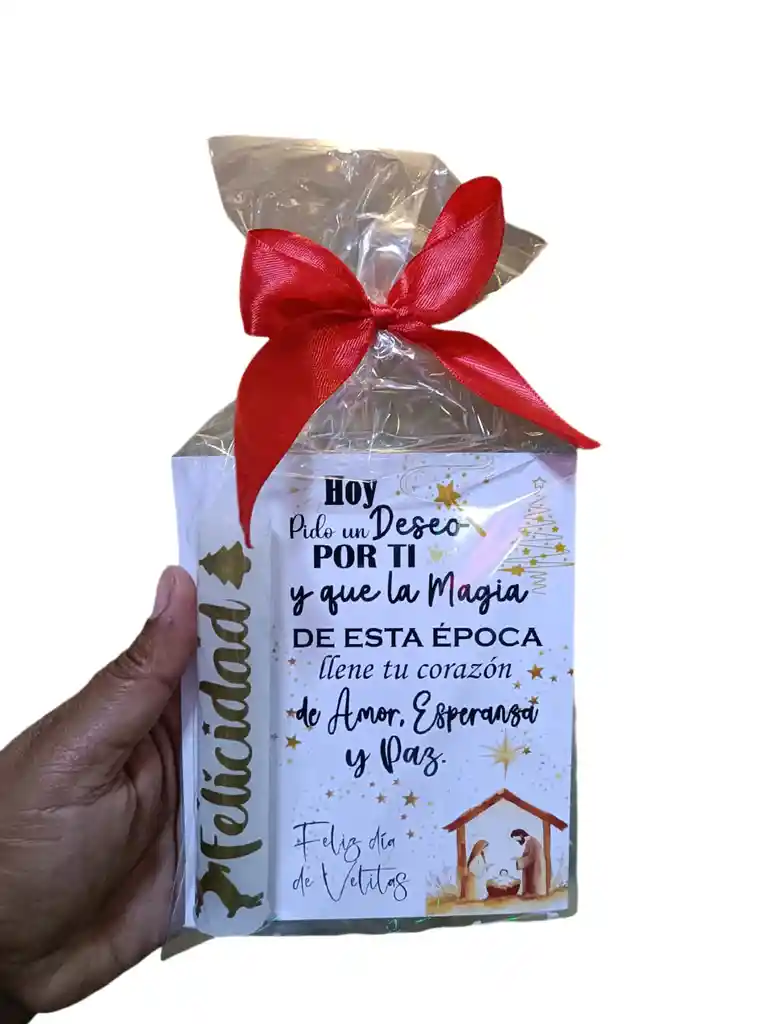 Hoy
Pido un Deseo
POR TI
y que la Magia
DE ESTA ÉPOCA
llene tu corazón
de Amor, Esperanza
y Paz.
Feliz día
de Velitas
Felicidad